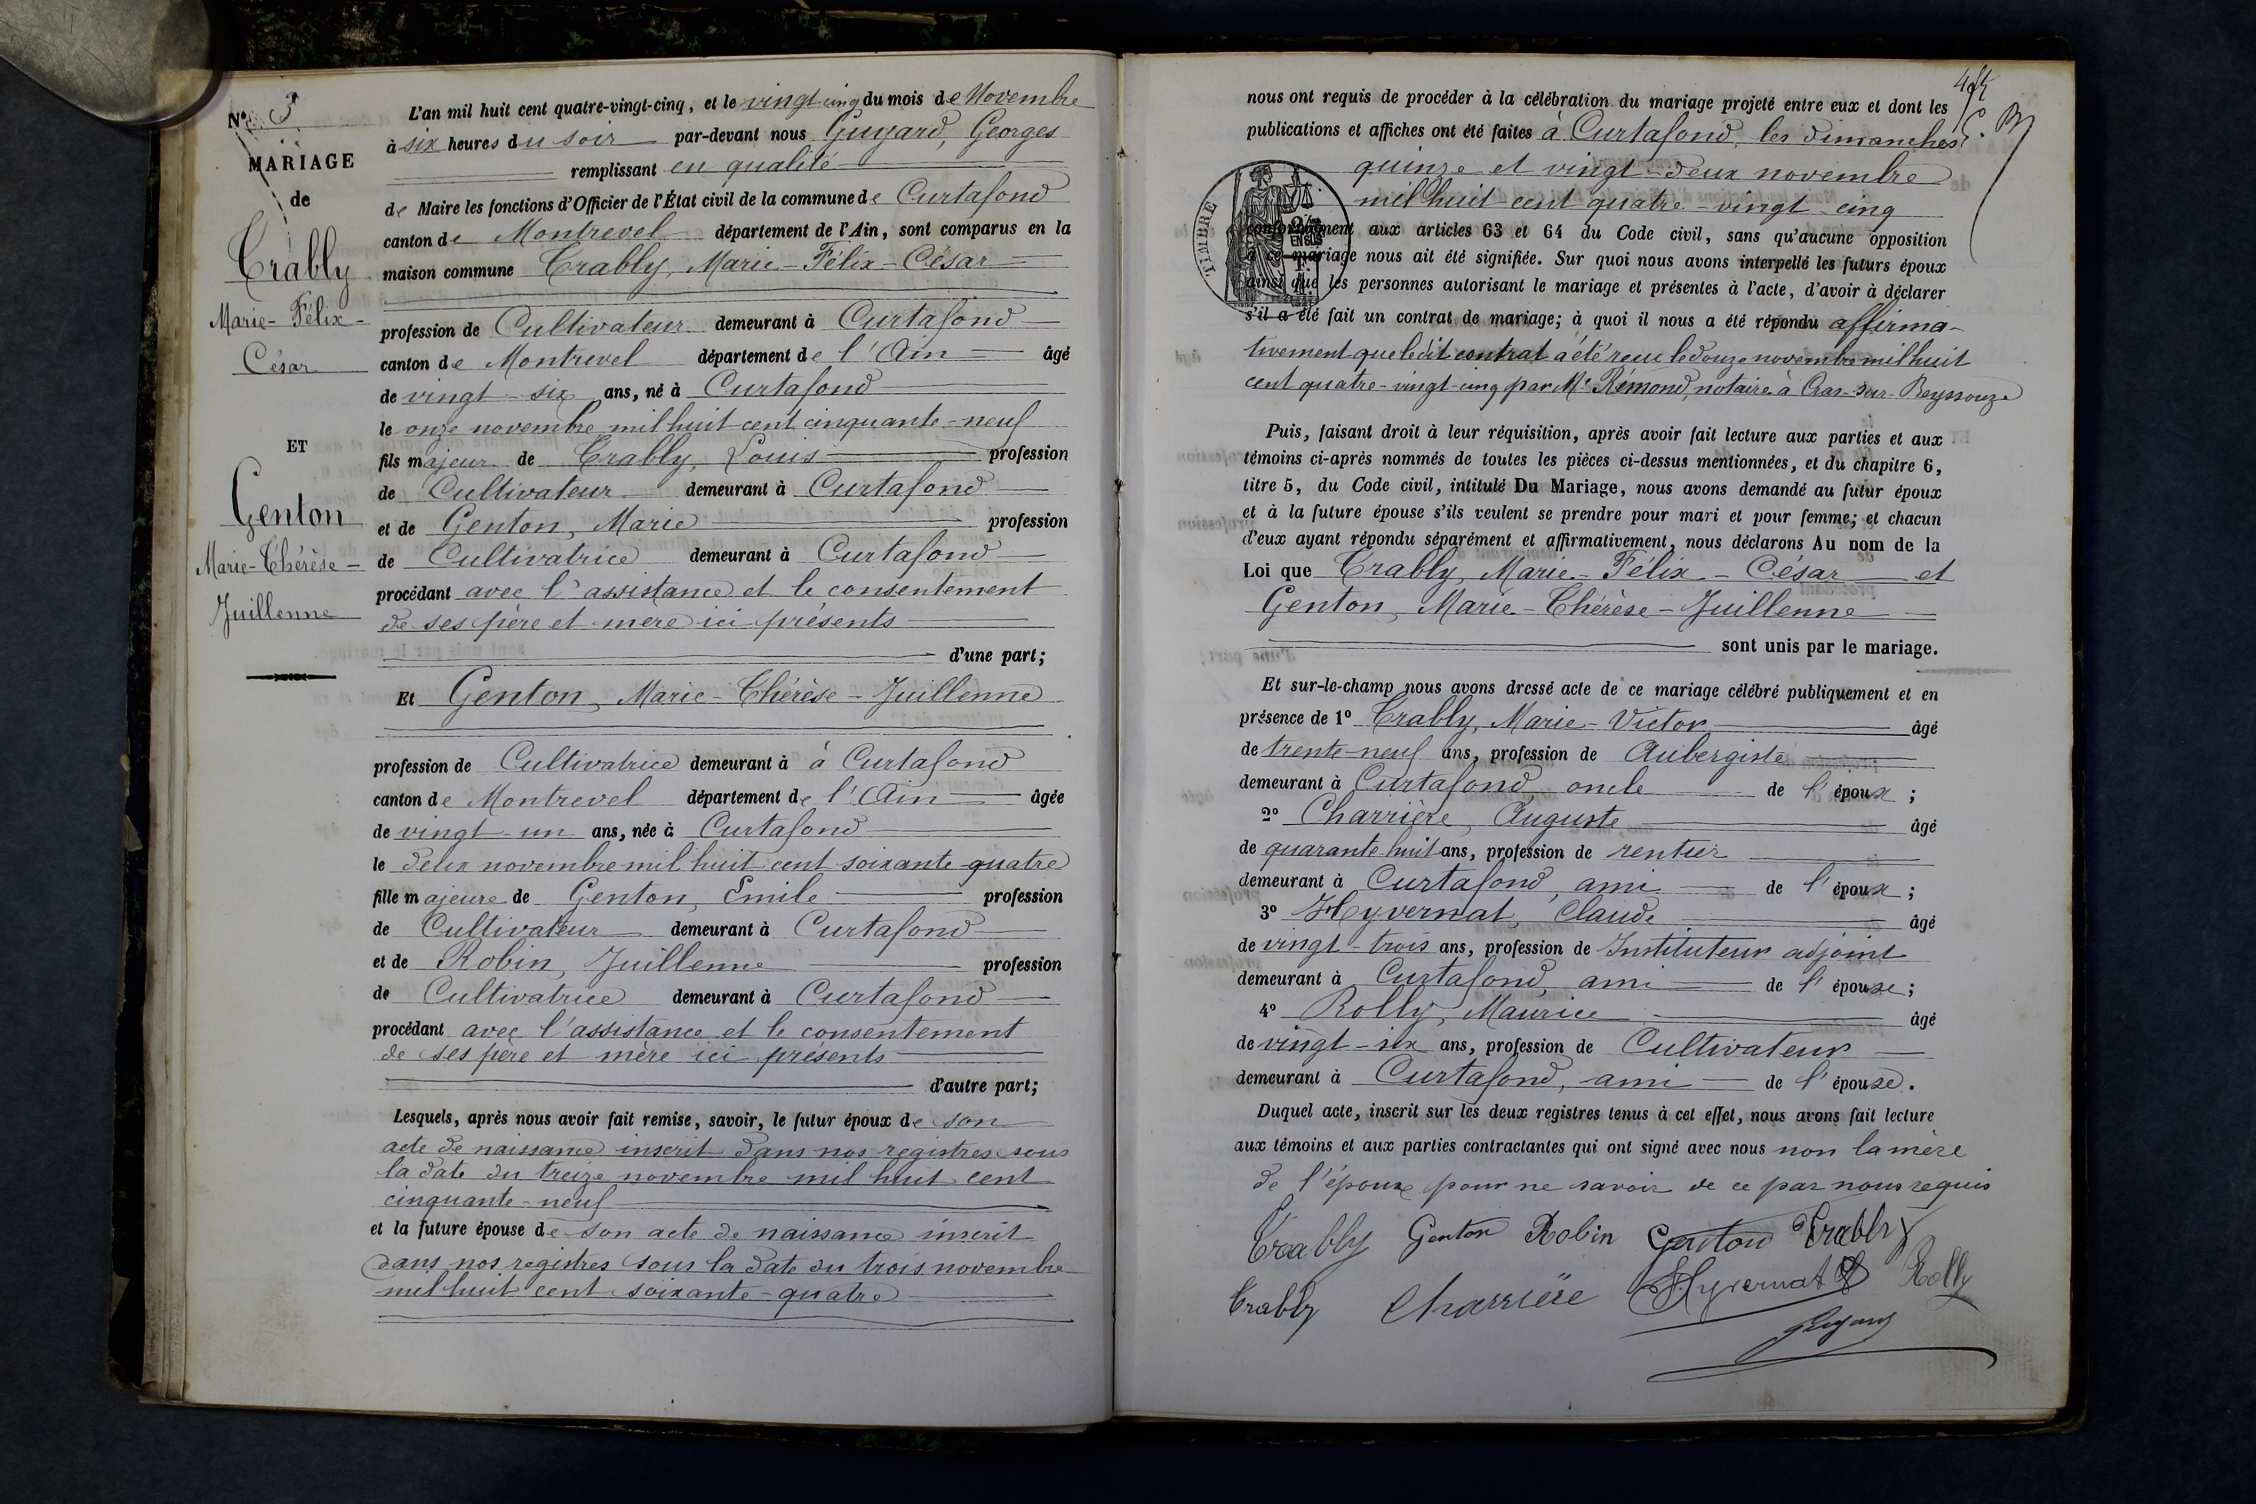 N° 3
MARIAGE
de
Crably
Marie-Félix-
César
ET
Genton
Marie-Thérèse-
Juillenne
L'an mil huit cent quatre-vingt-cinq, et le vingt cinq du mois de Novembre
à six heures du soir par-devant nous Guyard, Georges
remplissant en qualité
de Maire les fonctions d'Officier de l'État civil de la commune de Curtafond
canton de Montrevel département de l'Ain, sont comparus en la
maison commune Crably, Marie-Félix-César
profession de Cultivateur demeurant à Curtafond
canton de Montrevel département de l'Ain âgé
de vingt-six ans, né à Curtafond
le onze novembre mil huit cent cinquante-neuf
fils majeur de Crably, Louis profession
de Cultivateur demeurant à Curtafond
et de Genton, Marie profession
de Cultivatrice demeurant à Curtafond
procédant avec l'assistance et le consentement
de ses père et mère ici présents
d'une part;
Et Genton, Marie-Thérèse-Juillenne
profession de Cultivatrice demeurant à à Curtafond
canton de Montrevel département de l'Ain âgée
de vingt-un ans, née à Curtafond
le deux novembre mil huit cent soixante-quatre
fille majeure de Genton, Emile profession
de Cultivateur demeurant à Curtafond
et de Robin, Juillenne profession
de Cultivatrice demeurant à Curtafond
procédant avec l'assistance et le consentement
de ses père et mère ici présents
d'autre part;
Lesquels, après nous avoir fait remise, savoir, le futur époux de son
acte de naissance inscrit dans nos registres sous
la date du treize novembre mil huit cent
cinquante-neuf
et la future épouse de son acte de naissance inscrit
dans nos registres sous la date du trois novembre
mil huit cent soixante-quatre
nous ont requis de procéder à la célébration du mariage projeté entre eux et dont les
publications et affiches ont été faites à Curtafond, les dimanches
quinze et vingt-deux novembre
mil huit cent quatre-vingt-cinq
TIMBRE
conformément aux articles 63 et 64 du Code civil, sans qu'aucune opposition
à ce mariage nous ait été signifiée. Sur quoi nous avons interpellé les futurs époux
ainsi que les personnes autorisant le mariage et présentes à l'acte, d'avoir à déclarer
s'il a été fait un contrat de mariage; à quoi il nous a été répondu affirma-
tivement que ledit contrat a été reçu le douze novembre mil huit
cent quatre-vingt-cinq par Me Rémond, notaire à Cras-sur-Reyssouze
Puis, faisant droit à leur réquisition, après avoir fait lecture aux parties et aux
témoins ci-après nommés de toutes les pièces ci-dessus mentionnées, et du chapitre 6,
titre 5, du Code civil, intitulé Du Mariage, nous avons demandé au futur époux
et à la future épouse s'ils veulent se prendre pour mari et pour femme; et chacun
d'eux ayant répondu séparément et affirmativement, nous déclarons Au nom de la
Loi que Crably, Marie-Félix-César et
Genton, Marie-Thérèse-Juillenne
sont unis par le mariage.
Et sur-le-champ nous avons dressé acte de ce mariage célébré publiquement et en
présence de 1° Crably, Marie-Victor âgé
de trente-neuf ans, profession de Aubergiste
demeurant à Curtafond, oncle de l'époux;
2° Charrière, Auguste âgé
de quarante huit ans, profession de rentier
demeurant à Curtafond, ami de l'époux;
3° Hyvernat, Claude âgé
de vingt-trois ans, profession de Instituteur adjoint
demeurant à Curtafond, ami de l'épouse;
4° Rolly, Maurice âgé
de vingt-six ans, profession de Cultivateur
demeurant à Curtafond, ami de l'épouse.
Duquel acte, inscrit sur les deux registres tenus à cet effet, nous avons fait lecture
aux témoins et aux parties contractantes qui ont signé avec nous non la mère
de l'époux pour ne savoir de ce par nous requis
Crably Genton Robin Genton Crably
Crably Charrière Hyvernat Rolly
Guyard